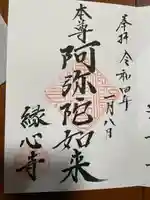 奉拝 令和四年
二月八日
本尊
阿弥陀如来
縁心寺